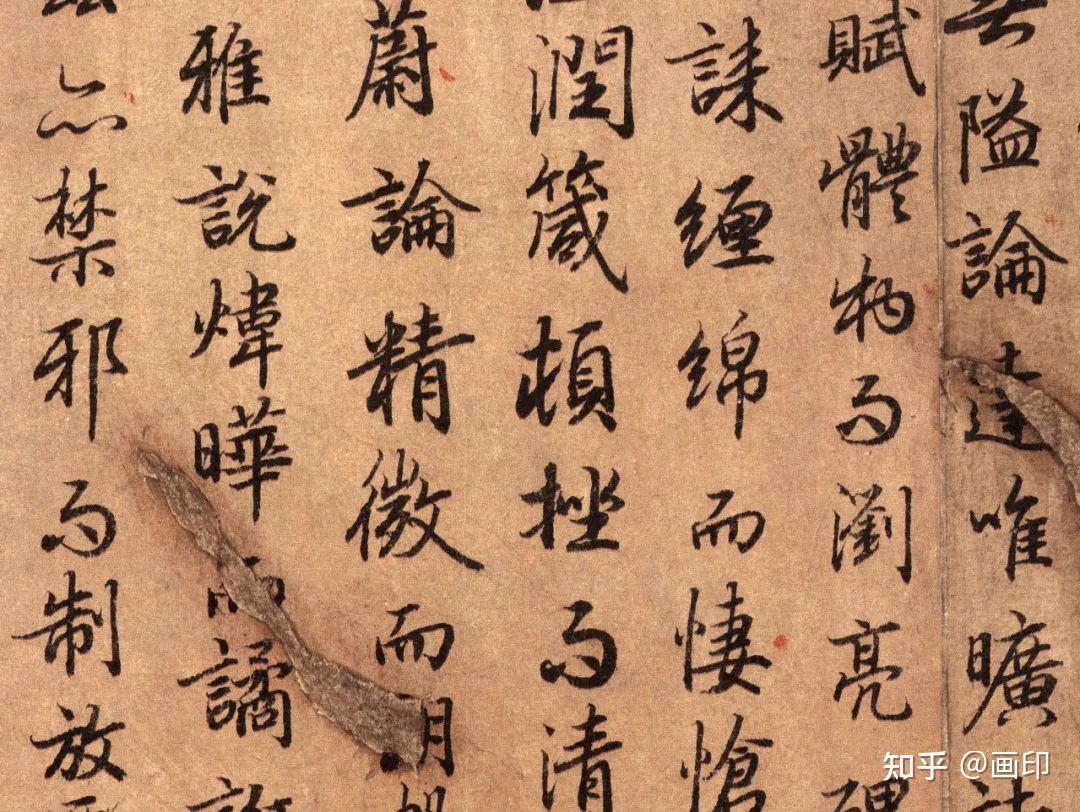 隘論達唯曠
賦體物而瀏亮碑
誄纏綿而悽愴
潤箴頓挫而清
蔚論精微而朗
雅說煒曄而譎
亦禁邪而制放
知乎 @画印